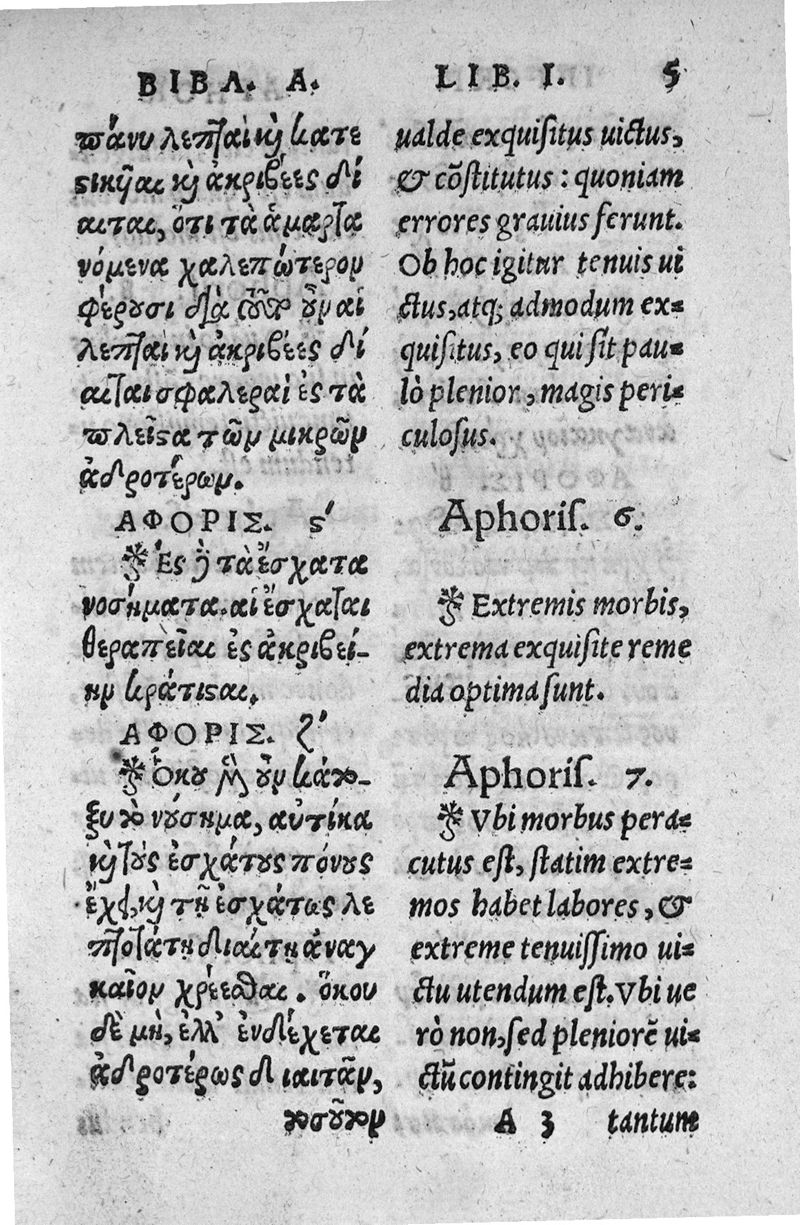 ΒΙΒΛ. Α.
πάνυ λεπταὶ καὶ κατε
στηκῦαι καὶ ἀκριβέες δί
αιται, ὅτι τὰ ἁμαρτα
νόμενα χαλεπώτερον
φέρουσι διὰ τοῦτο οὖν αἱ
λεπταὶ καὶ ἀκριβέες δί
αιται σφαλεραὶ ἐς τὰ
πλεῖστα τῶν μικρῶν
ἁδροτέρων.
ΑΦΟΡΙΣ. ϛʹ
Ἐς δὲ τὰ ἔσχατα
νοσήματα. αἱ ἔσχαται
θεραπεῖαι ἐς ἀκριβεί-
ην κράτισται.
ΑΦΟΡΙΣ. ζʹ
Ὅκου μὲν οὖν κάτο-
ξυ τὸ νόσημα, αὐτίκα
καὶ τοὺς ἐσχάτους πόνους
ἔχει, καὶ τῇ ἐσχάτως λε
πτοτάτῃ διαίτῃ ἀναγ
καῖον χρέεσθαι. ὅκου
δὲ μὴ, ἀλλ' ἐνδέχεται
ἁδροτέρως διαιτᾶν,
τοσοῦτον
LIB. I. 5
ualde exquisitus uictus,
& cõstitutus : quoniam
errores grauius ferunt.
Ob hoc igitur tenuis ui
ctus, atq; admodum ex=
quisitus, eo qui sit pau=
lò plenior, magis peri=
culosus.
Aphoris. 6.
Extremis morbis,
extrema exquisite reme
dia optima sunt.
Aphoris. 7.
Vbi morbus pera=
cutus est, statim extre=
mos habet labores, &
extreme tenuissimo ui=
ctu utendum est. Vbi ue
rò non, sed pleniorẽ ui=
ctũ contingit adhibere:
A 3 tantum